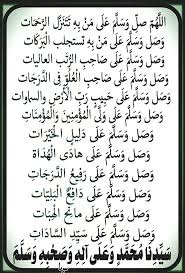 اللَّهُمَّ صَلِّ وَسَلَّمْ عَلَى مَنْ بِهِ تَتَنَزَّلُ الرَّحَمَات
وَصَل وَسَلَّمْ عَلَى مَنْ بِهِ تستجلب الْبَرَكَات
وَصَل وَسَلَّمْ عَلَى صَاحِبِ الرُّتَب العاليات
وَصَل وَسَلَّمْ عَلَى صَاحِبِ الْعُلُوِّ فِي الدَّرَجَات
وَصَل وَسَلَّمْ عَلَى حَبِيبِ رَبِّ الْأَرْضِ والسماوات
وَصَل وَسَلَّمْ عَلَى وَلِيِّ الْمُؤْمِنِينَ وَالْمُؤْمِنَات
وَصَل وَسَلَّمْ عَلَى دَلِيلِ الْخَيْرَات
وَصَل وَسَلَّمْ عَلَى هادى الْهُدَاة
وَصَل وَسَلَّمْ عَلَى رَفِيعُ الدَّرَجَات
وَصَل وَسَلَّمْ عَلَى دَافِعِ الْبَلِيَّات
وَصَل وَسَلَّمْ عَلَى مانِحِ الْهِبَات
وَصَل وَسَلَّمْ عَلَى سَيِّدِ السَّادَات
سَيِّدِنَا مُحَمَّدٍ وَعَلَى آلِهِ وَصَحْبِهِ وَسَلَّمَ